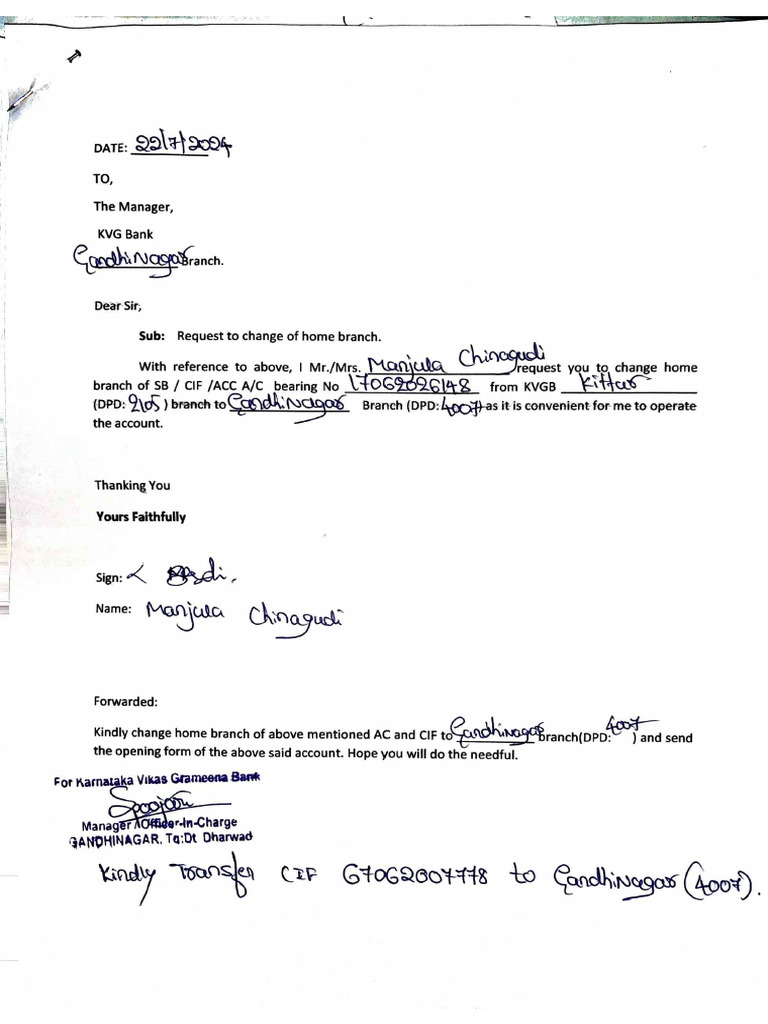 DATE: 22/7/2024
TO,
The Manager,
KVG Bank
GandhiNagar Branch.
Dear Sir,
Sub: Request to change of home branch.
With reference to above, I Mr./Mrs. Manjula Chinagudi request you to change home
branch of SB / CIF /ACC A/C bearing No 17062026148 from KVGB Kittur
(DPD: 2105 ) branch to GandhiNagar Branch (DPD: 4007) as it is convenient for me to operate
the account.
Thanking You
Yours Faithfully
Sign:
Name: Manjula Chinagudi
Forwarded:
Kindly change home branch of above mentioned AC and CIF to GandhiNagar branch(DPD: 4007 ) and send
the opening form of the above said account. Hope you will do the needful.
For Karnataka Vikas Grameena Bank
Manager / Officer-In-Charge
GANDHINAGAR, Tq:Dt Dharwad
Kindly Transfer CIF 67062007778 to GandhiNagar (4007).